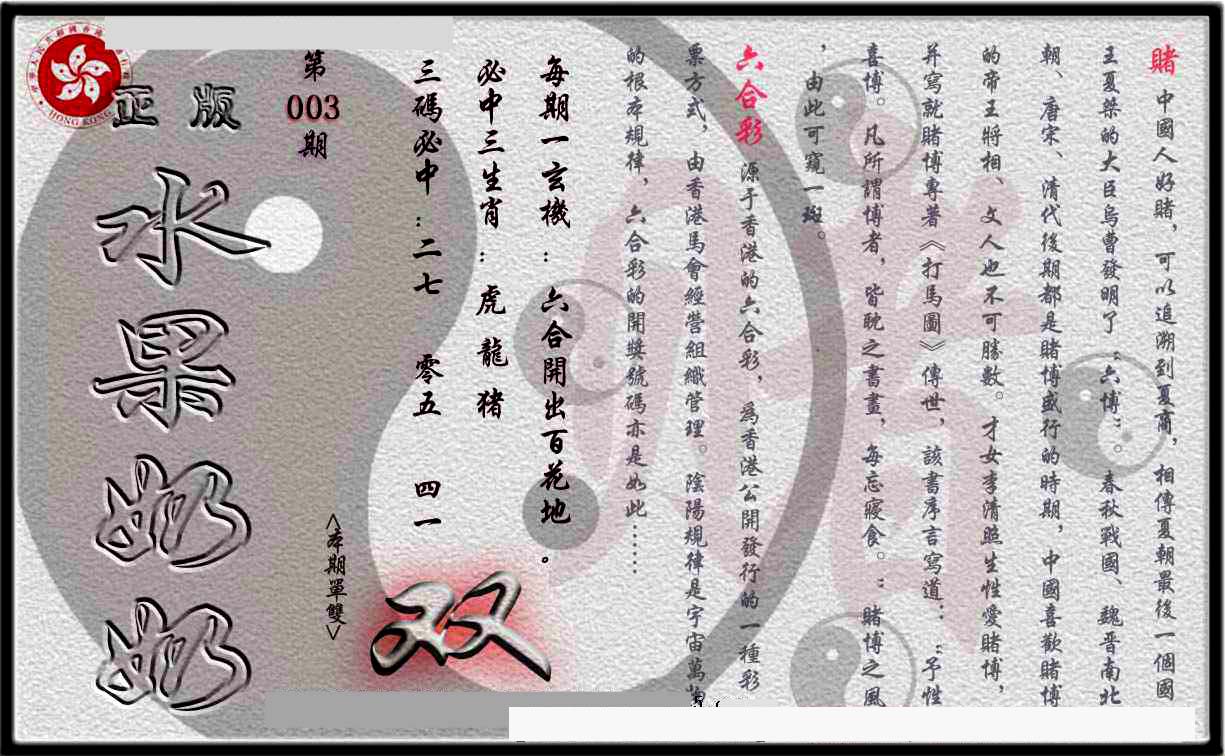 賭 中國人好賭，可以追溯到夏商，相傳夏朝最後一個國
王夏桀的大臣烏曹發明了“六博”。春秋戰國、魏晋南北
朝、唐宋、清代後期都是賭博盛行的時期，中國喜歡賭博
的帝王將相、文人也不可勝數。才女李清照生性愛賭博，
并寫就賭博專著《打馬圖》傳世，該書序言寫道：“予性
喜博。凡所謂博者，皆耽之書畫，每忘寢食。”賭博之風
，由此可窺一斑。
六合彩 源于香港的六合彩，爲香港公開發行的一種彩
票方式，由香港馬會經營組織管理。陰陽規律是宇宙萬物
的根本規律，六合彩的開獎號碼亦是如此……
每期一玄機：六合開出百花地。
必中三生肖：虎 龍 猪
三碼必中：二七 零五 四一
<本期單雙>
双
第
003
期
正版
水果奶奶
HONG KONG